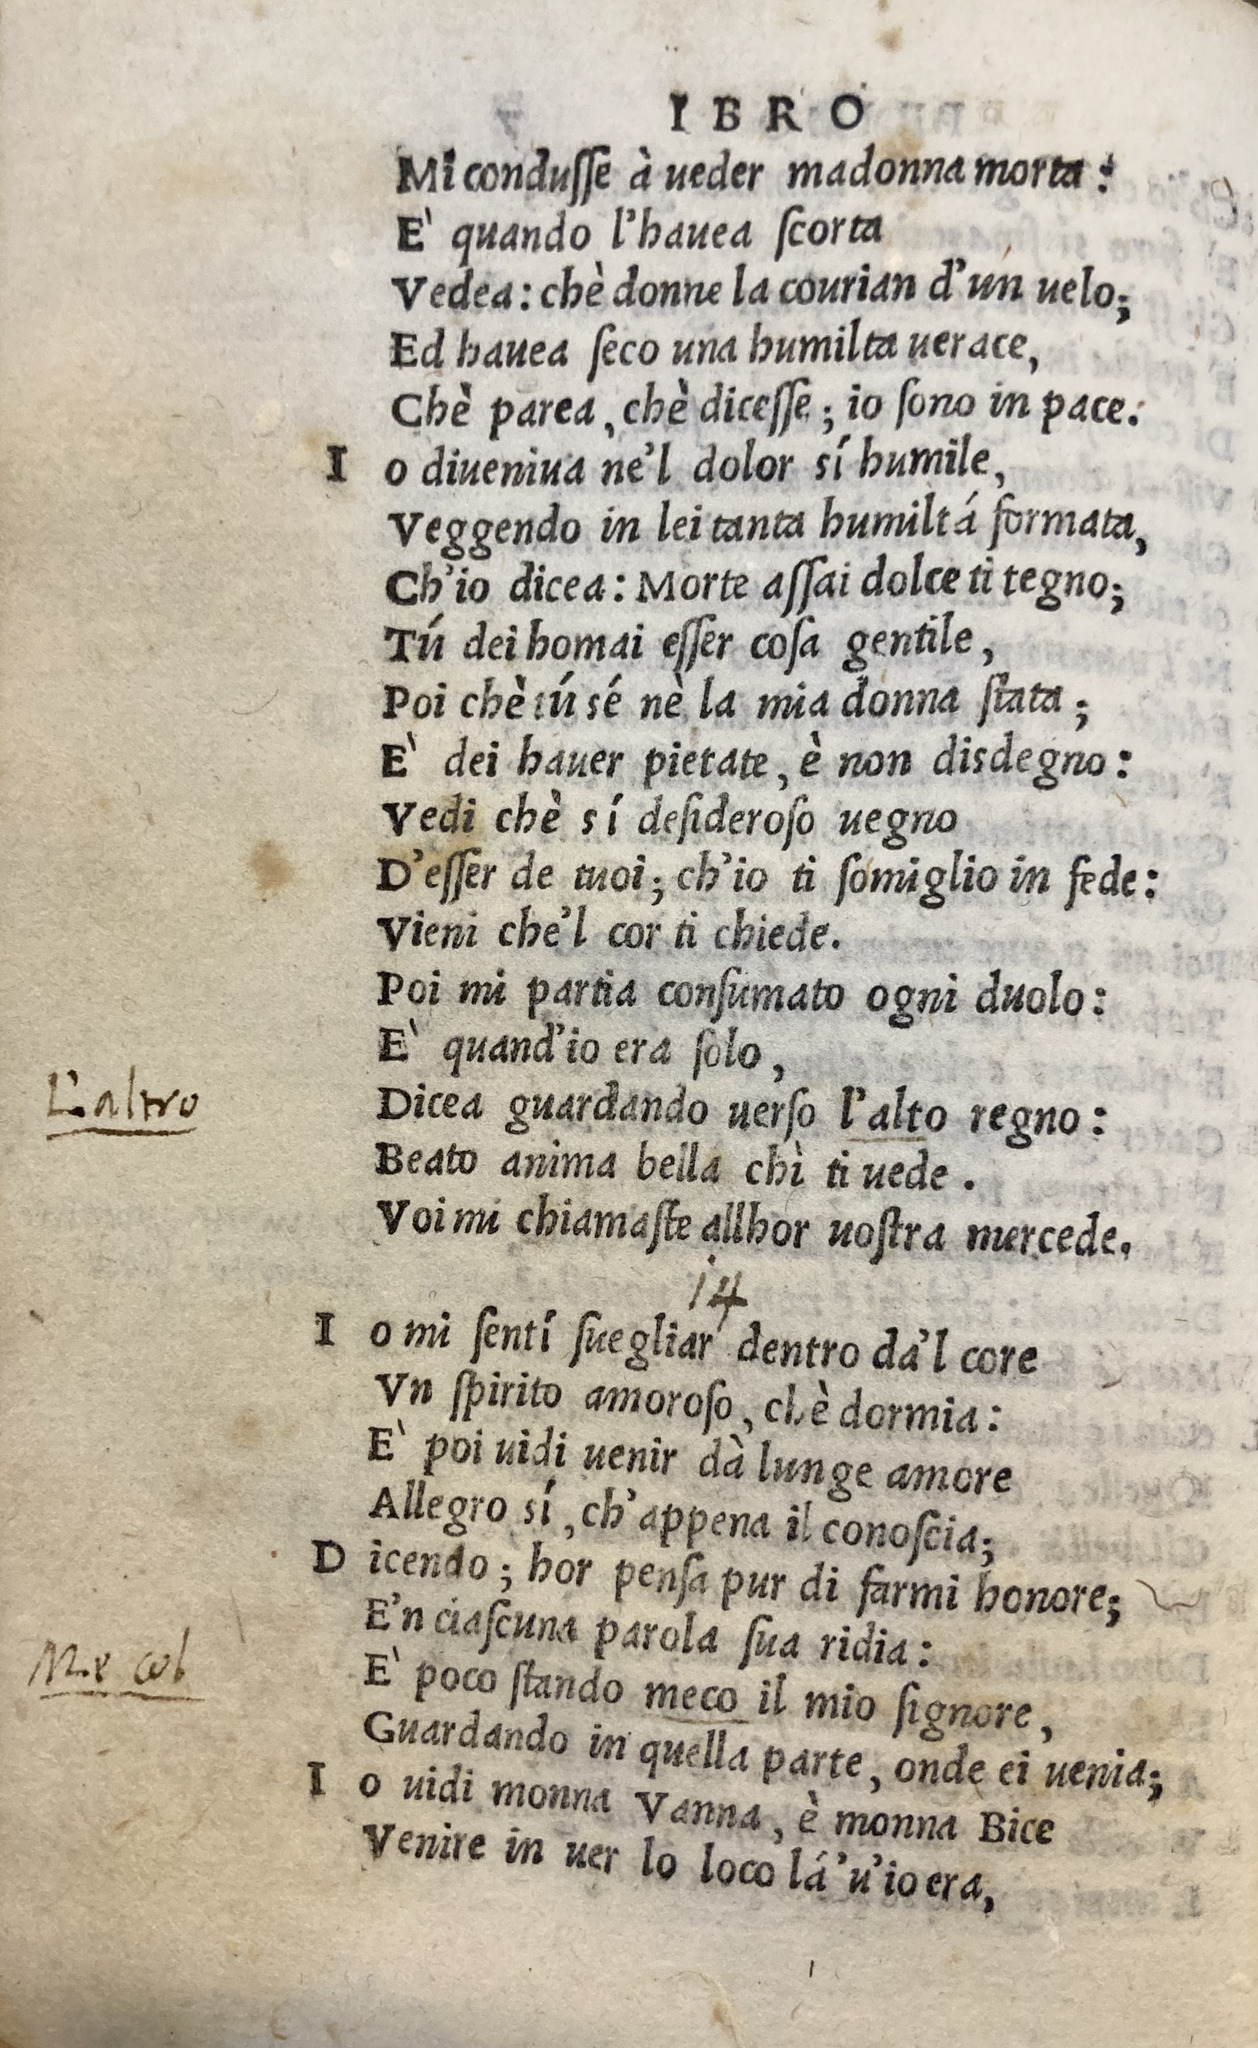 IBRO
Mi condusse à ueder madonna morta:
E' quando l'hauea scorta
Vedea: chè donne la courian d'un uelo;
Ed hauea seco una humilta uerace,
Chè parea, chè dicesse; io sono in pace.
I o diueniua ne'l dolor sí humile,
Veggendo in lei tanta humiltá formata,
Ch'io dicea: Morte assai dolce ti tegno;
Tú dei homai esser cosa gentile,
Poi chè tú sé nè la mia donna stata;
E' dei hauer pietate, è non disdegno:
Vedi chè sí desideroso uegno
D'esser de tuoi; ch'io ti somiglio in fede:
Vieni che'l cor ti chiede.
Poi mi partia consumato ogni duolo:
E' quand'io era solo,
L'altro
Dicea guardando uerso l'alto regno:
Beato anima bella chì ti uede.
Voi mi chiamaste allhor uostra mercede.
14
I o mi sentí suegliar dentro da'l core
Vn spirito amoroso, chè dormia:
E' poi uidi uenir dà lunge amore
Allegro sí, ch'appena il conoscia;
D icendo; hor pensa pur di farmi honore;
E'n ciascuna parola sua ridia:
Me col
E' poco stando meco il mio signore,
Guardando in quella parte, onde ei uenia;
I o uidi monna Vanna, è monna Bice
Venire in uer lo loco lá'u'io era,